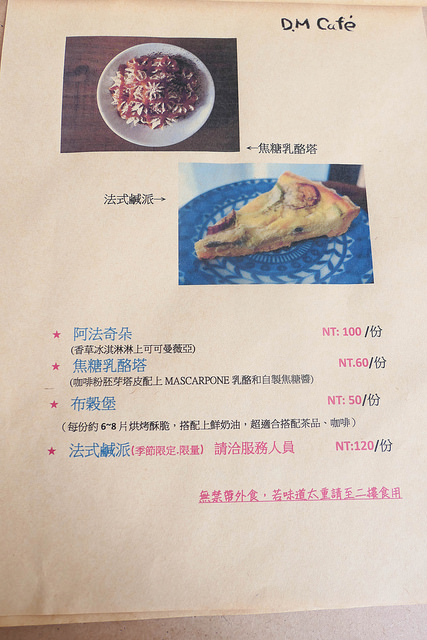 D.M Café
←焦糖乳酪塔
法式鹹派→
★ 阿法奇朵 NT: 100 /份
(香草冰淇淋淋上可可曼薇亞)
★ 焦糖乳酪塔 NT.60/份
(咖啡粉胚芽塔皮配上 MASCARPONE 乳酪和自製焦糖醬)
★ 布穀堡 NT: 50/份
（每份約 6~8 片烘烤酥脆，搭配上鮮奶油，超適合搭配茶品、咖啡）
★ 法式鹹派(季節限定.限量) 請洽服務人員 NT:120/份
無禁帶外食，若味道太重請至二樓食用